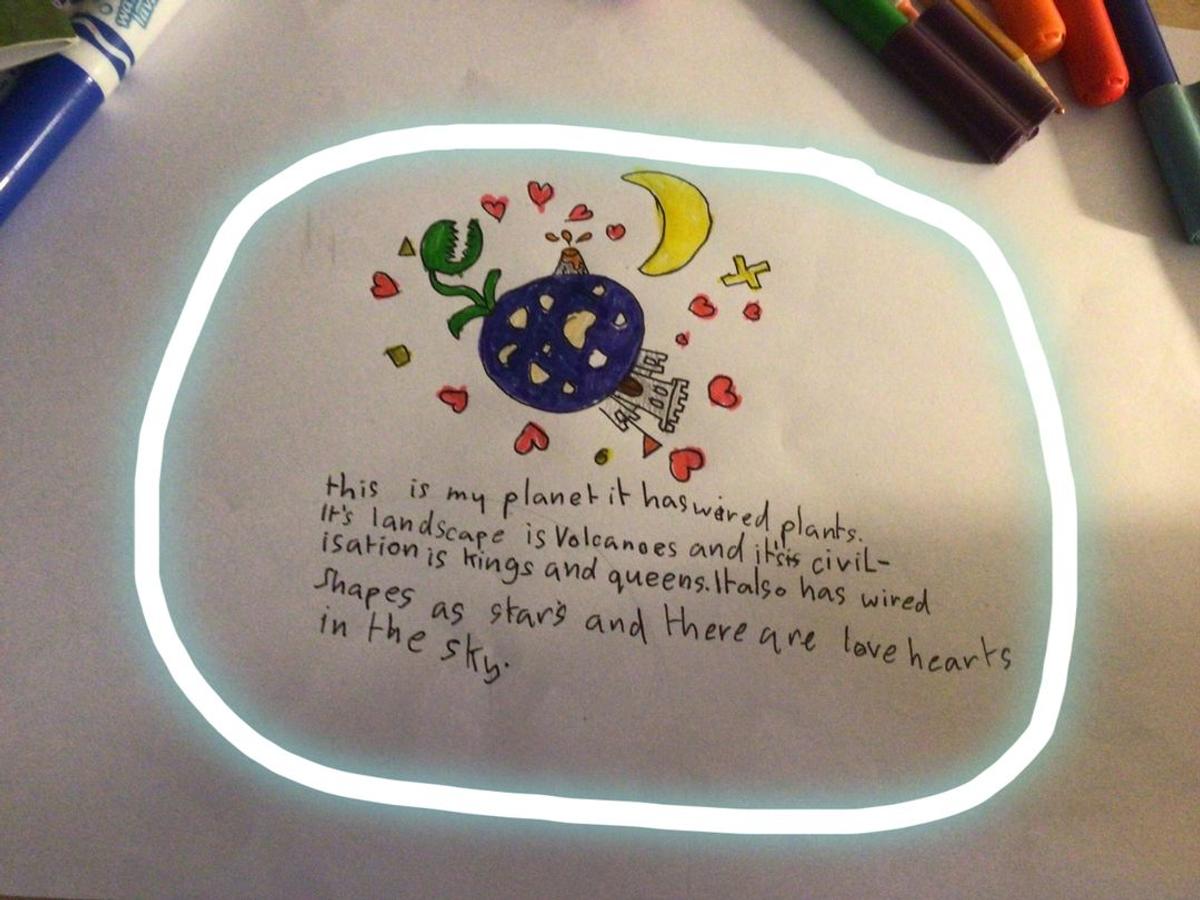 this is my planet it has wired plants.
It's landscape is Volcanoes and it's civil-
isation is kings and queens. It also has wired
shapes as star's and there are love hearts
in the sky.